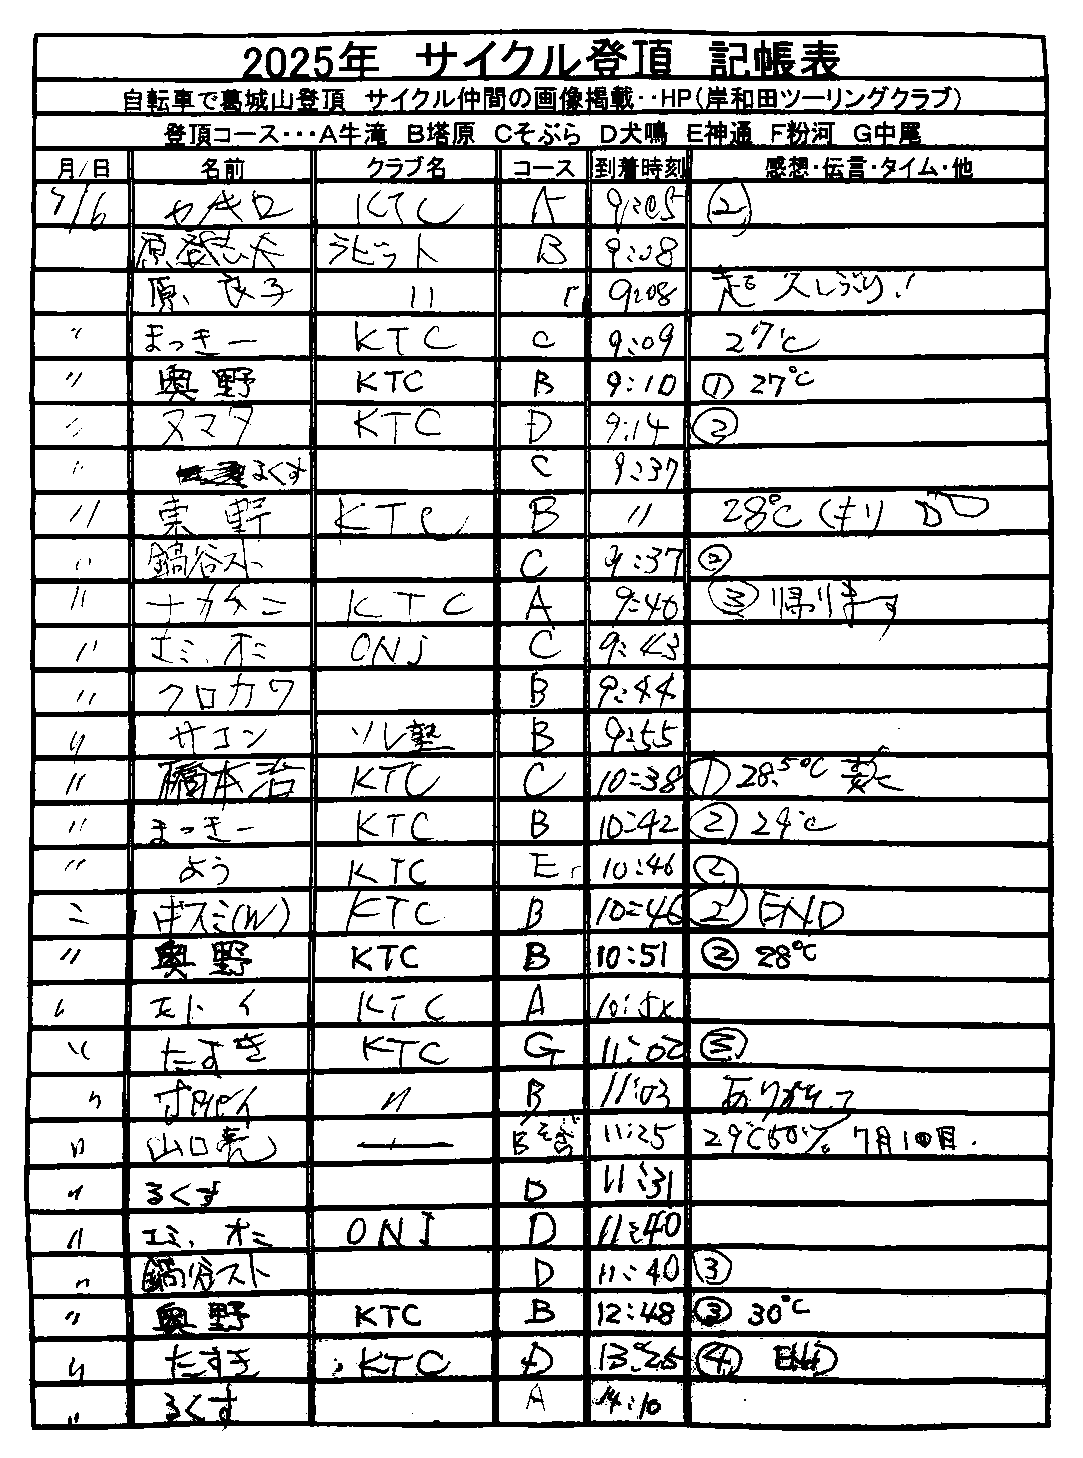 2025年 サイクル登頂 記帳表
自転車で葛城山登頂 サイクル仲間の画像掲載‥HP(岸和田ツーリングクラブ)
登頂コース・・・A牛滝 B塔原 Cそぶら D犬鳴 E神通 F粉河 G中尾
月/日 名前 クラブ名 コース 到着時刻 感想・伝言・タイム・他
7/6 KTC A 9:05 ②
ラビット B 9:08
原 良子 〃 r 9:08 超 久しぶり!
〃 まっきー KTC C 9:09 27℃
〃 奥野 KTC B 9:10 ① 27℃
〃 ヌマタ KTC D 9:14 ②
〃 るくす C 9:37
〃 東野 KTC B 〃 28℃
〃 鍋谷スト C 9:37 ②
〃 ナカタニ KTC A 9:40 ③ 帰ります
〃 エミ、オミ ONJ C 9:43
〃 クロカワ B 9:44
〃 サコン ソレ塾 B 9:55
〃 橋本治 KTC C 10:38 ① 28.5℃
〃 まっきー KTC B 10:42 ② 29℃
〃 よう KTC E 10:46 ②
〃 キスミ(W) KTC B 10:46 ② END
〃 奥野 KTC B 10:51 ② 28℃
〃 モトイ KTC A
〃 たすき KTC G 11:02 ③
〃 〃 B 11:03
〃 山口亮 B 11:25 29℃60% 7月1回目.
〃 るくす D 11:31
〃 エミ、オミ ONJ D 11:40
〃 鍋谷スト D 11:40 ③
〃 奥野 KTC B 12:48 ③ 30℃
〃 たすき KTC D 13:25 ④ END
〃 るくす A 14:10